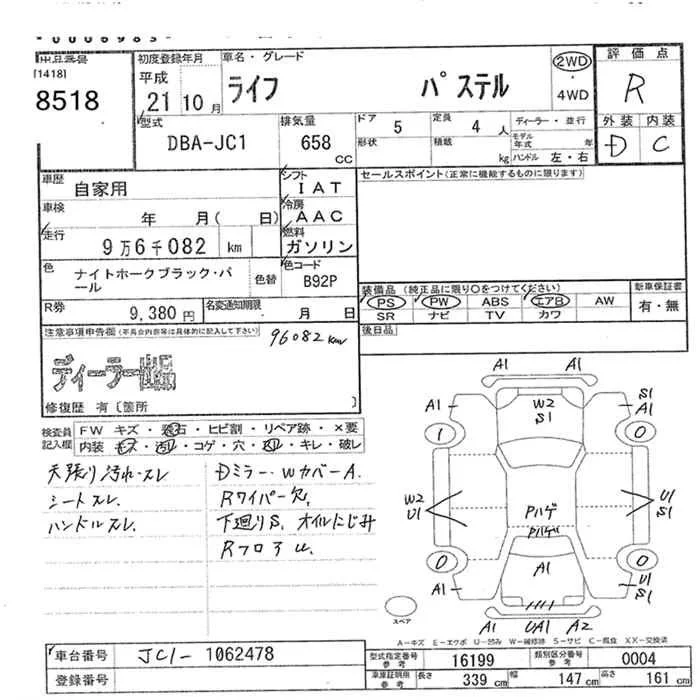 出品番号
[1418]
8518
初度登録年月
平成
21 10 月
車名・グレード
ライフ パステル
2WD
・
4WD
評価点
R
外装 内装
D C
型式
DBA-JC1
排気量
658 CC
ドア
5
形状
定員
4 人
積載
kg
ディーラー・並行
モデル年式 年
ハンドル 左・右
車歴
自家用
車検
年 月( 日)
走行
9万6千082 km
色
ナイトホークブラック・パール
色替
シフト
IAT
冷房
AAC
燃料
ガソリン
色コード
B92P
R券
9,380 円
名変通知期限
・ 月 日
セールスポイント(正常に機能するものに限ります)
装備品 (純正品に限り○をつけてください)
PS PW ABS エアB AW
SR ナビ TV カワ
新車保証書
有・無
後日品
注意事項申告欄(不具合内容等は具体的に記入して下さい)
96082 km
ディーラー
修復歴 有〔箇所 〕
検査員記入欄
FW キズ・飛石・ヒビ割・リペア跡・×要
内装 キズ・汚れ・コゲ・穴・スレ・キレ・破レ
天張り汚れ・スレ
シートスレ
ハンドルスレ
Dミラー・WカバーA.
Rワイパー欠,
下廻りS, オイルにじみ
RフロアU.
A1 A2
A1 W2 S1 S1 A1
1 0
W2 U1 Pハゲ Pハゲ U1 S1
0 A1 0
A1 U1 S1
A1 UA1 A2
スペア
A-キズ E-エクボ U-凹み W-補修跡 S-サビ C-腐食 XX-交換済
車台番号 JC1- 1062478
登録番号
型式指定番号 参考 16199
類別区分番号 参考 0004
車庫証明用 参考 長さ 339 cm 幅 147 cm 高さ 161 cm